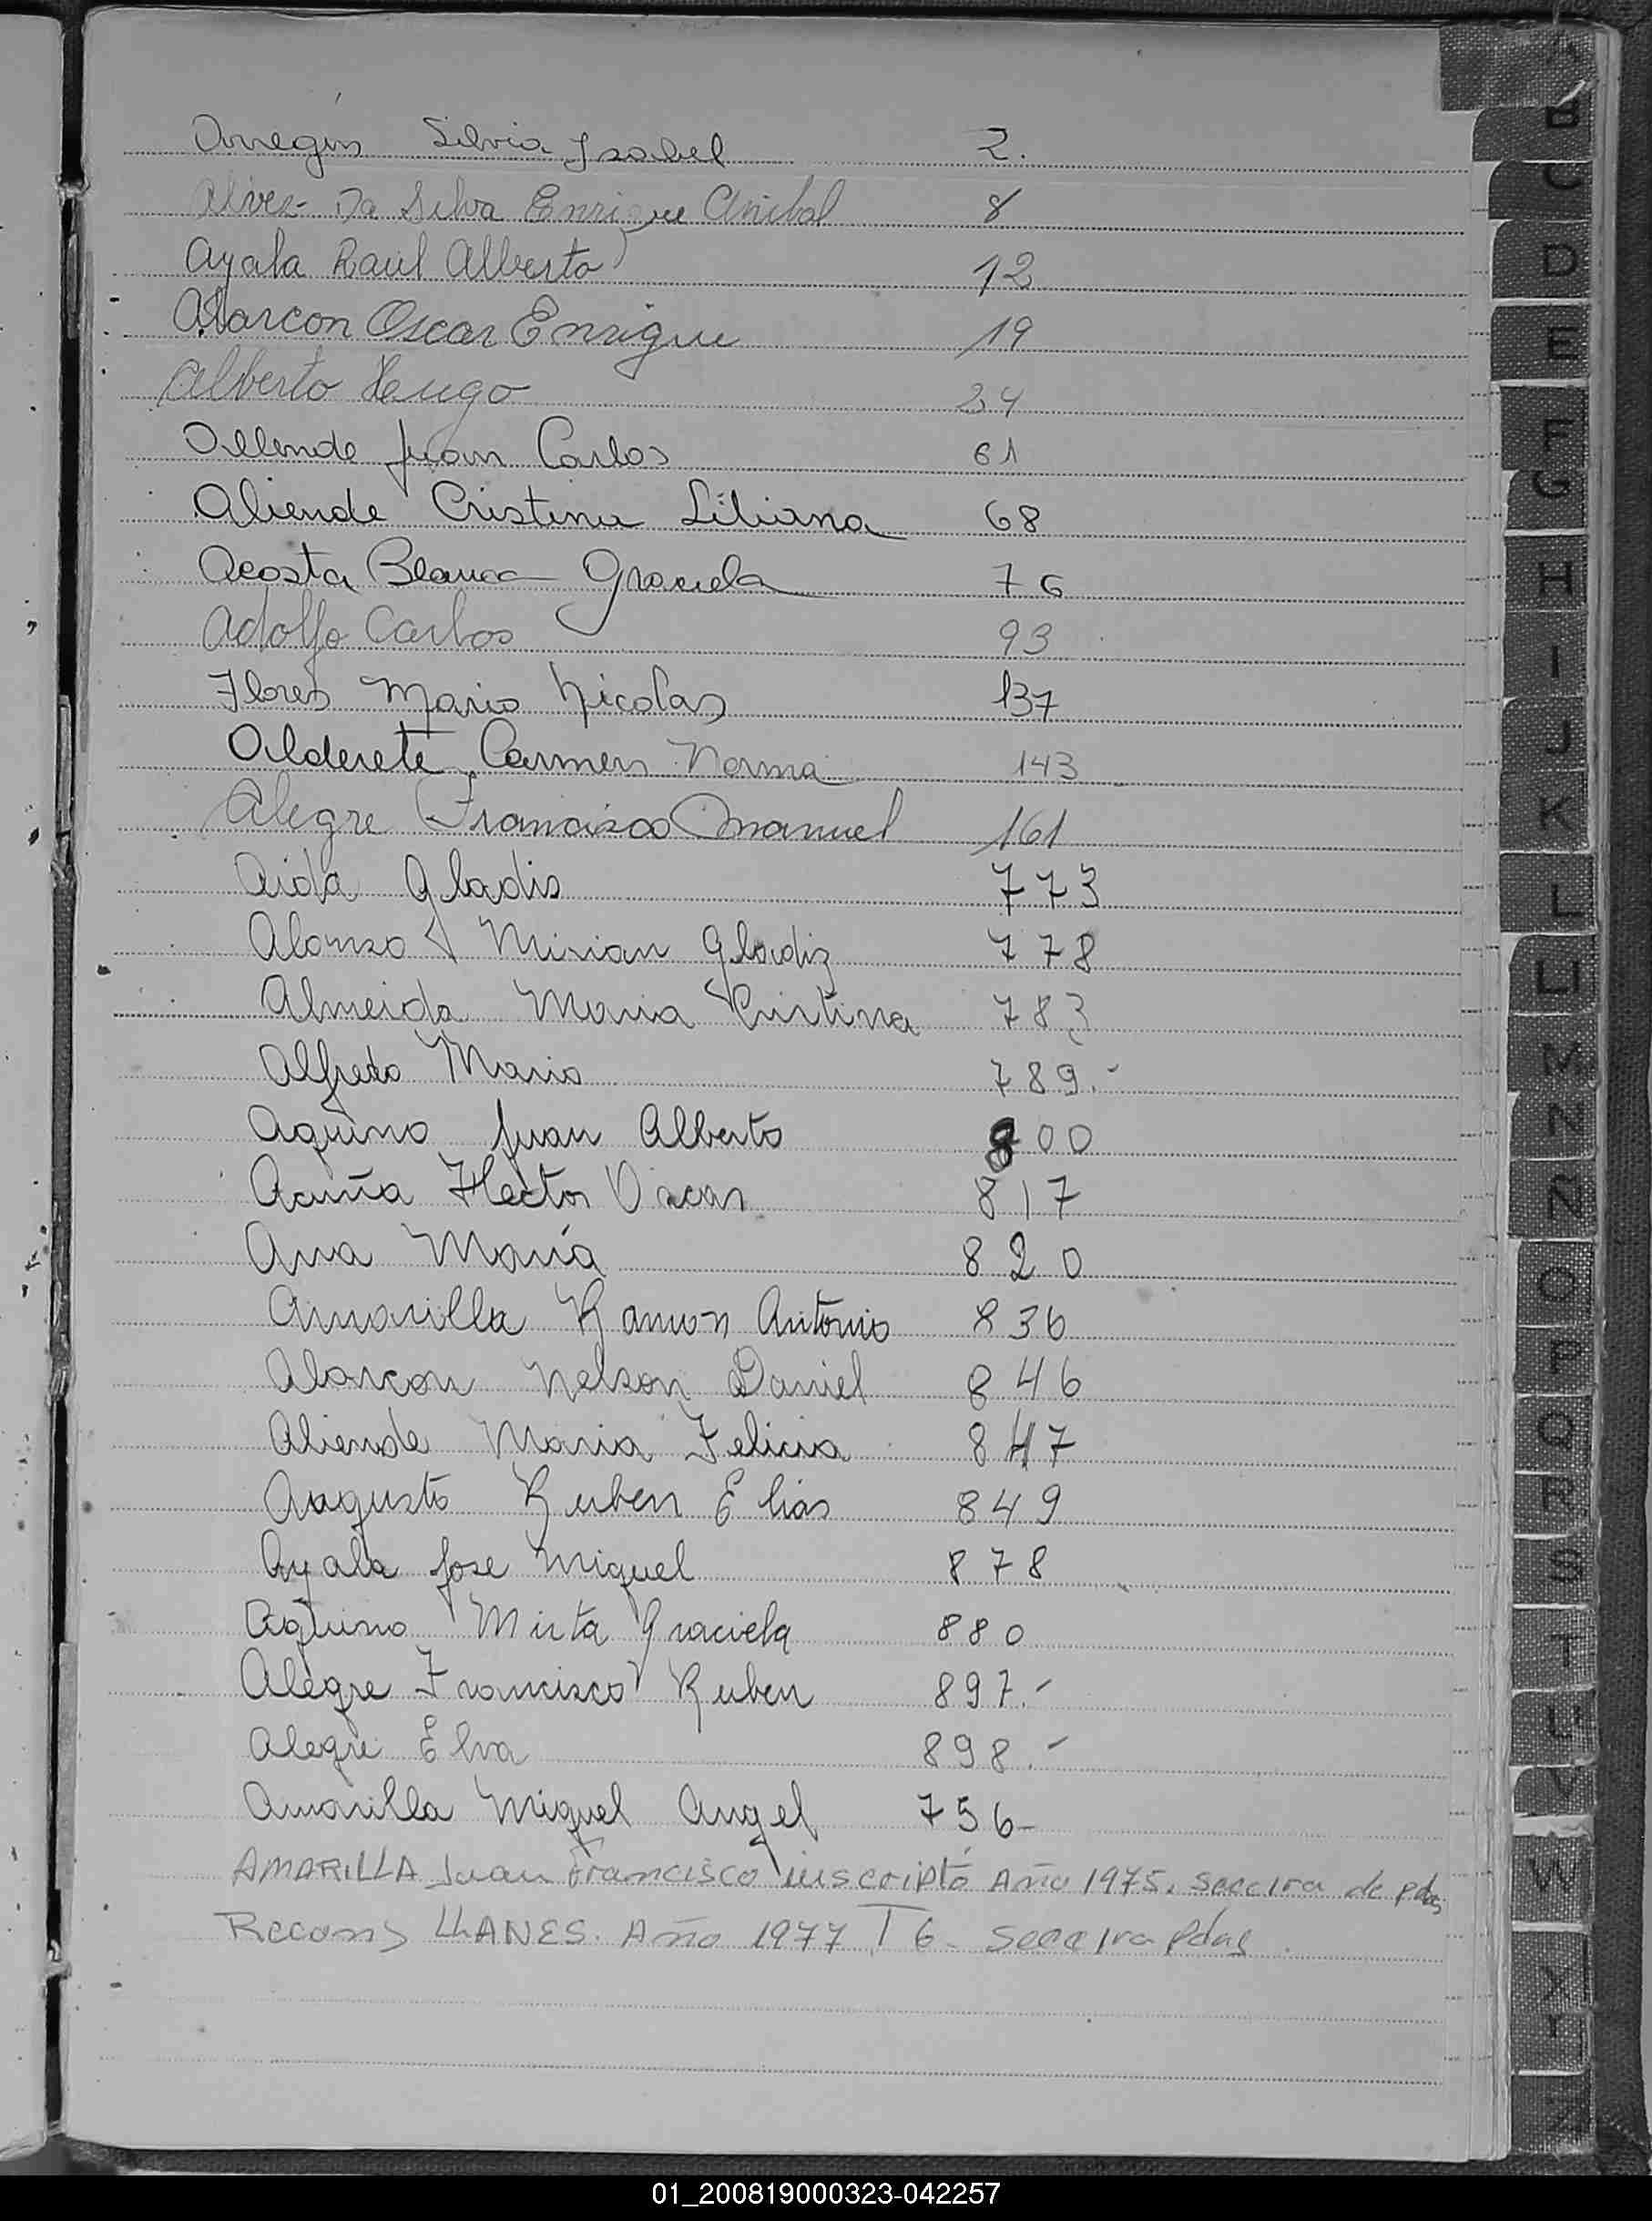 Arregin Silvia Isabel 2.
Alvez Da Silva Enrique Anibal 8
Ayala Raúl Alberto 12
Alarcon Oscar Enrique 19
Alberto Hugo 34
Allende Juan Carlos 61
Aliende Cristina Liliana 68
Acosta Blanca Graciela 76
Adolfo Carlos 93
Flores Mario Nicolas 137
Alderete Carmen Norma 143
Alegre Francisco Manuel 161
Aida Gladis 773
Alonzo Mirian Gladiz 778
Almeida Maria Cristina 783
Alfredo Mario 789.-
Aquino Juan Alberto 800
Acuña Hector Oscar 817
Ana María 820
Amarilla Ramon Antonio 836
Alarcon Nelson Daniel 846
Aliende Maria Felicia 847
Augusto Ruben Elias 849
Ayala Jose Miguel 878
Aquino Mirta Graciela 880
Alegre Francisco Ruben 897.-
Alegre Elva 898.-
Amarilla Miguel Angel 756-
AMARILLA Juan Francisco inscripto Año 1975. Secc 1ra de pdas
Recon LLANES. Año 1977 T 6- Secc 1ra Pdas.
A
B
C
D
E
F
G
H
I
J
K
L
LL
M
N
Ñ
O
P
Q
R
S
T
U
V
W
X
Y
Z
01_200819000323-042257